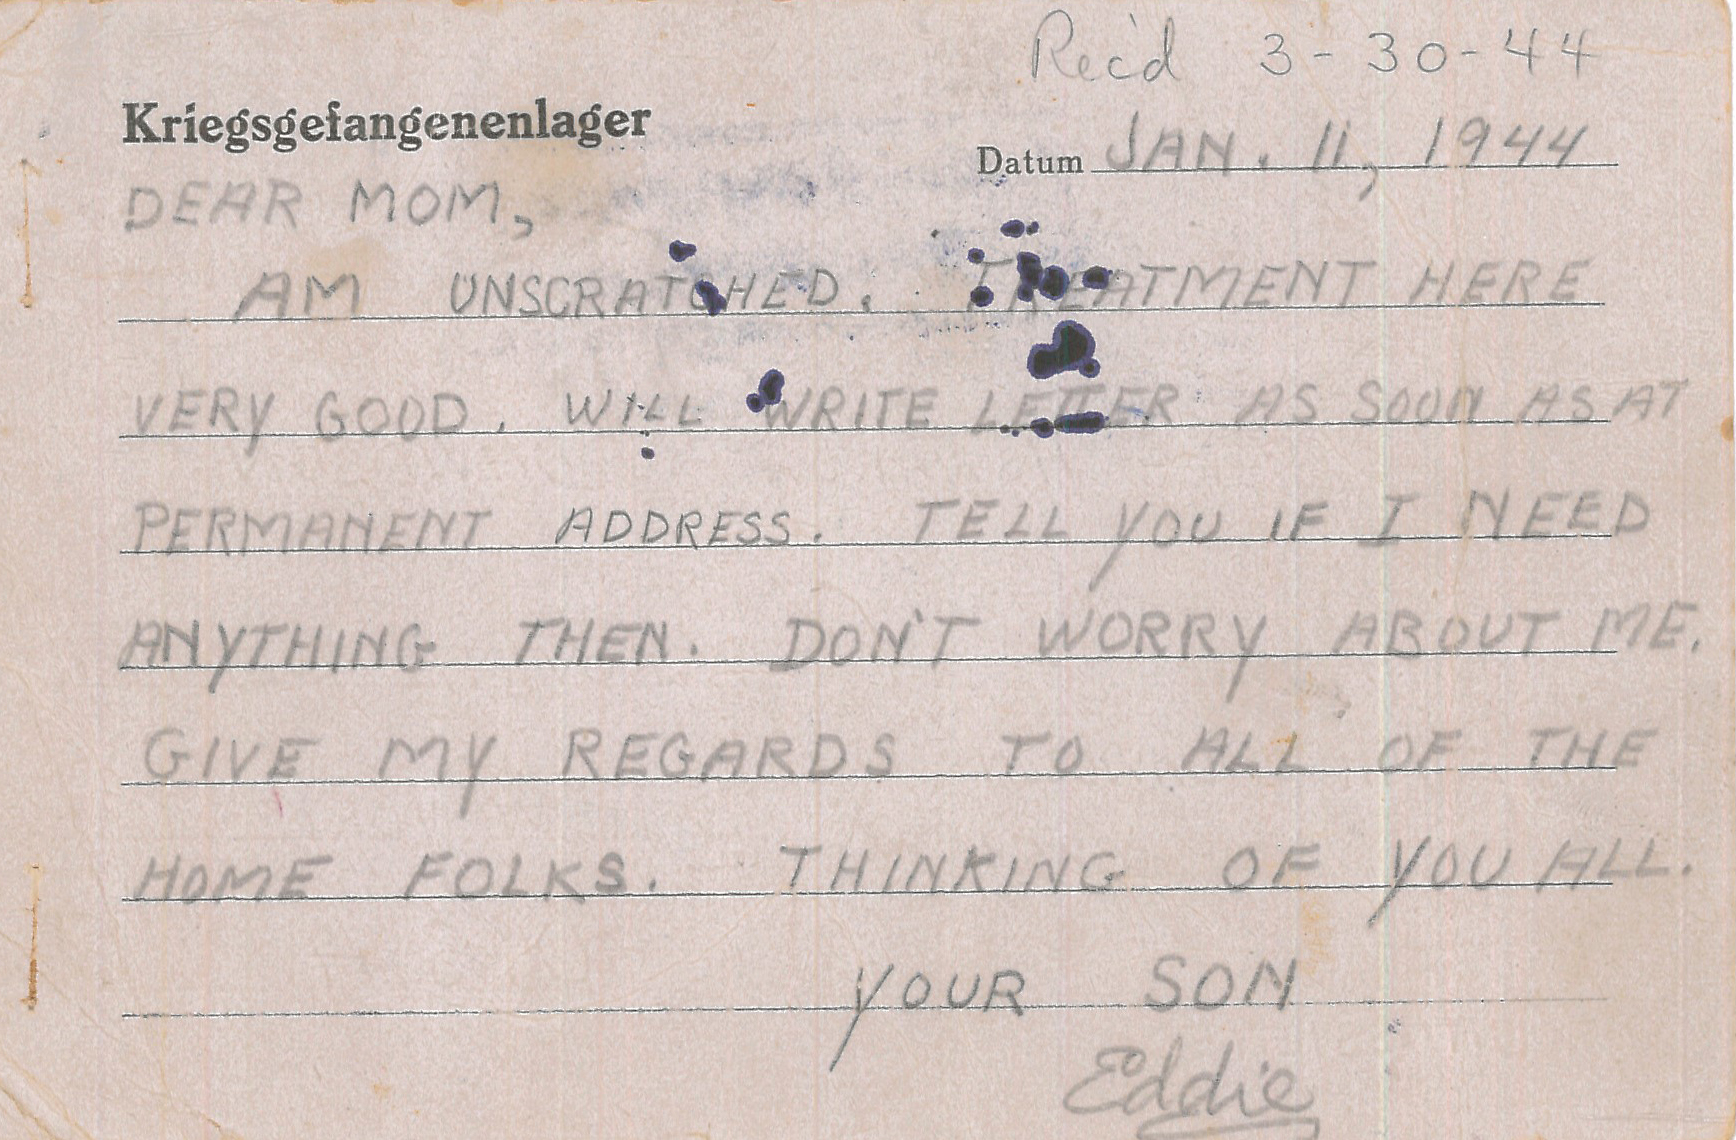 Rec'd 3-30-44
Kriegsgefangenenlager
Datum JAN. 11, 1944
DEAR MOM,
AM UNSCRATCHED. TREATMENT HERE
VERY GOOD. WILL WRITE LETTER AS SOON AS AT
PERMANENT ADDRESS. TELL YOU IF I NEED
ANYTHING THEN. DON'T WORRY ABOUT ME.
GIVE MY REGARDS TO ALL OF THE
HOME FOLKS. THINKING OF YOU ALL.
YOUR SON
Eddie